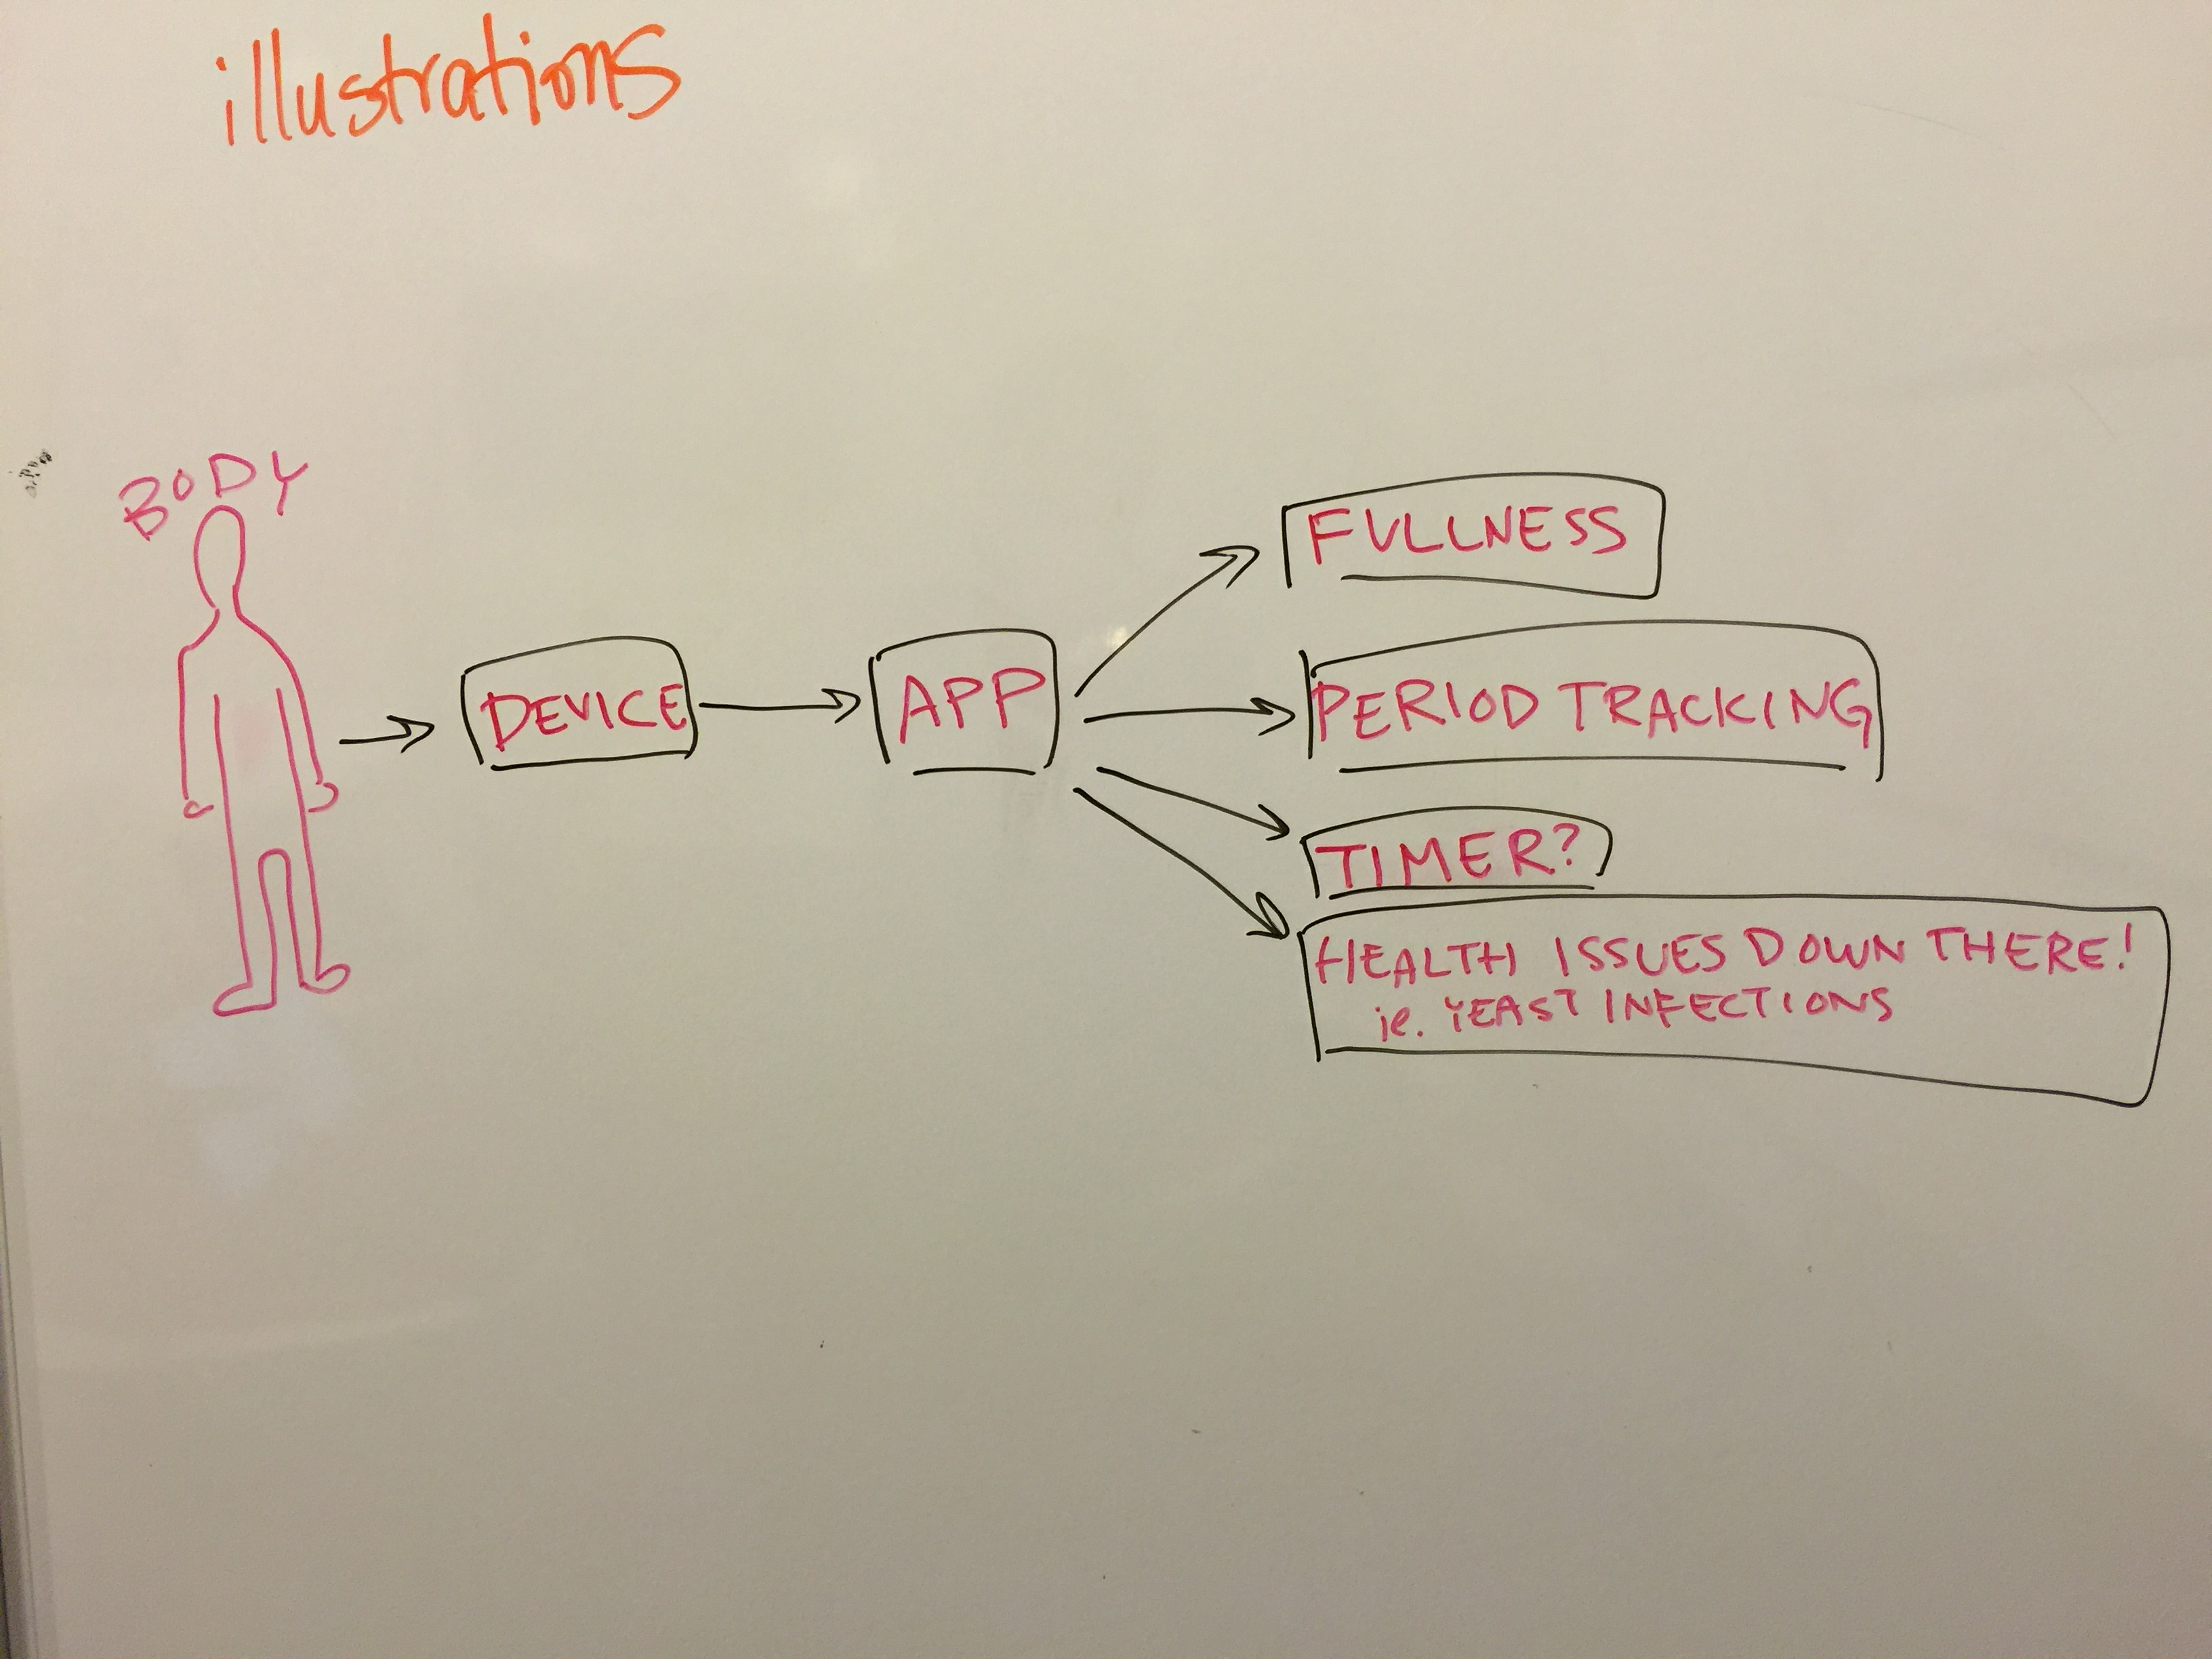 illustrations
BODY
DEVICE
APP
FULLNESS
PERIOD TRACKING
TIMER?
HEALTH ISSUES DOWN THERE!
ie. YEAST INFECTIONS